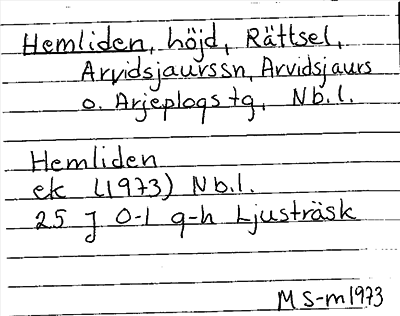 Hemliden, höjd, Rättsel,
Arvidsjaurssn, Arvidsjaurs
o. Arjeplogs tg, Nb.l.
Hemliden
ek (1973) Nb.l.
25 J 0-1 g-h Ljusträsk
MS-m1973